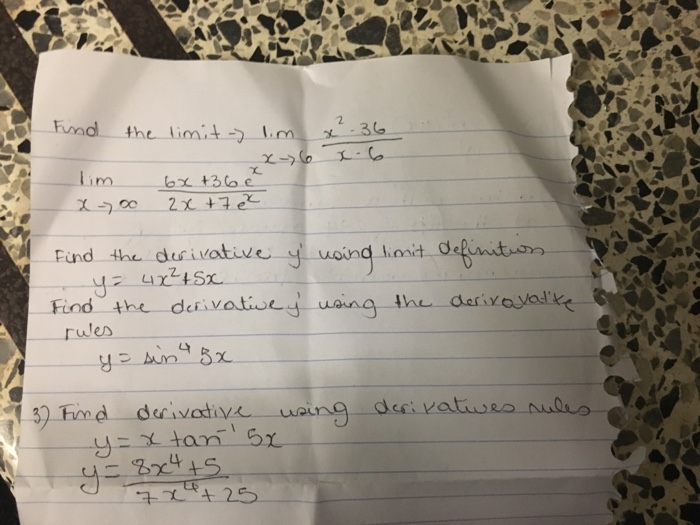 Find the limit → lim x² - 36
x→6 x - 6
lim 6x + 36e^x
x→∞ 2x + 7e^x
Find the derivative y' using limit definition
y = 4x² + 5x
Find the derivative y' using the deriravatike
rules
y = sin⁴ 5x
3) Find derivative using derivatives rules
y = x tan⁻¹ 5x
y = 8x⁴ + 5
7x⁴ + 25